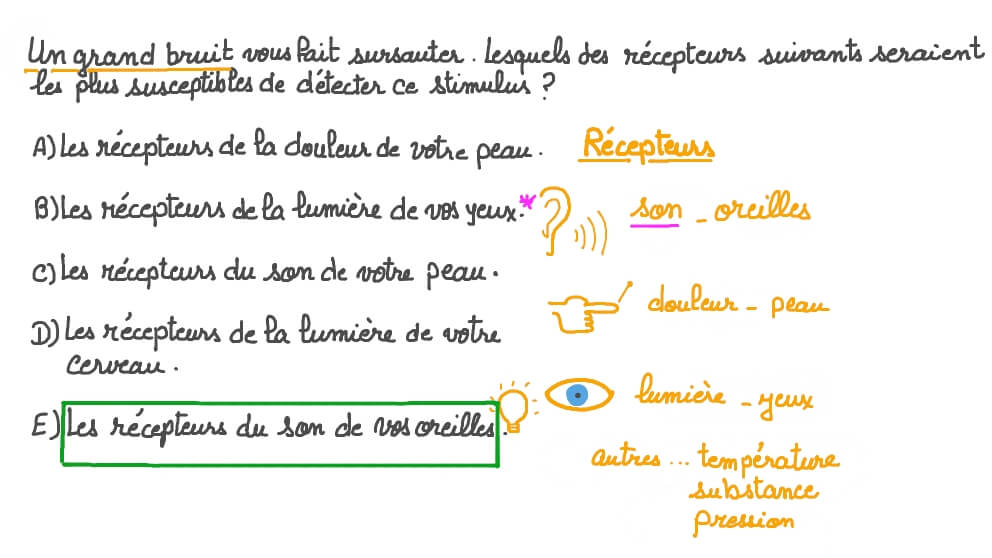 Un grand bruit vous fait sursauter. Lesquels des récepteurs suivants seraient
les plus susceptibles de détecter ce stimulus ?
A) Les récepteurs de la douleur de votre peau.
Récepteurs
B) Les récepteurs de la lumière de vos yeux.*
son - oreilles
C) Les récepteurs du son de votre peau.
douleur - peau
D) Les récepteurs de la lumière de votre
cerveau.
lumière - yeux
E) Les récepteurs du son de vos oreilles.
autres ... température
substance
pression